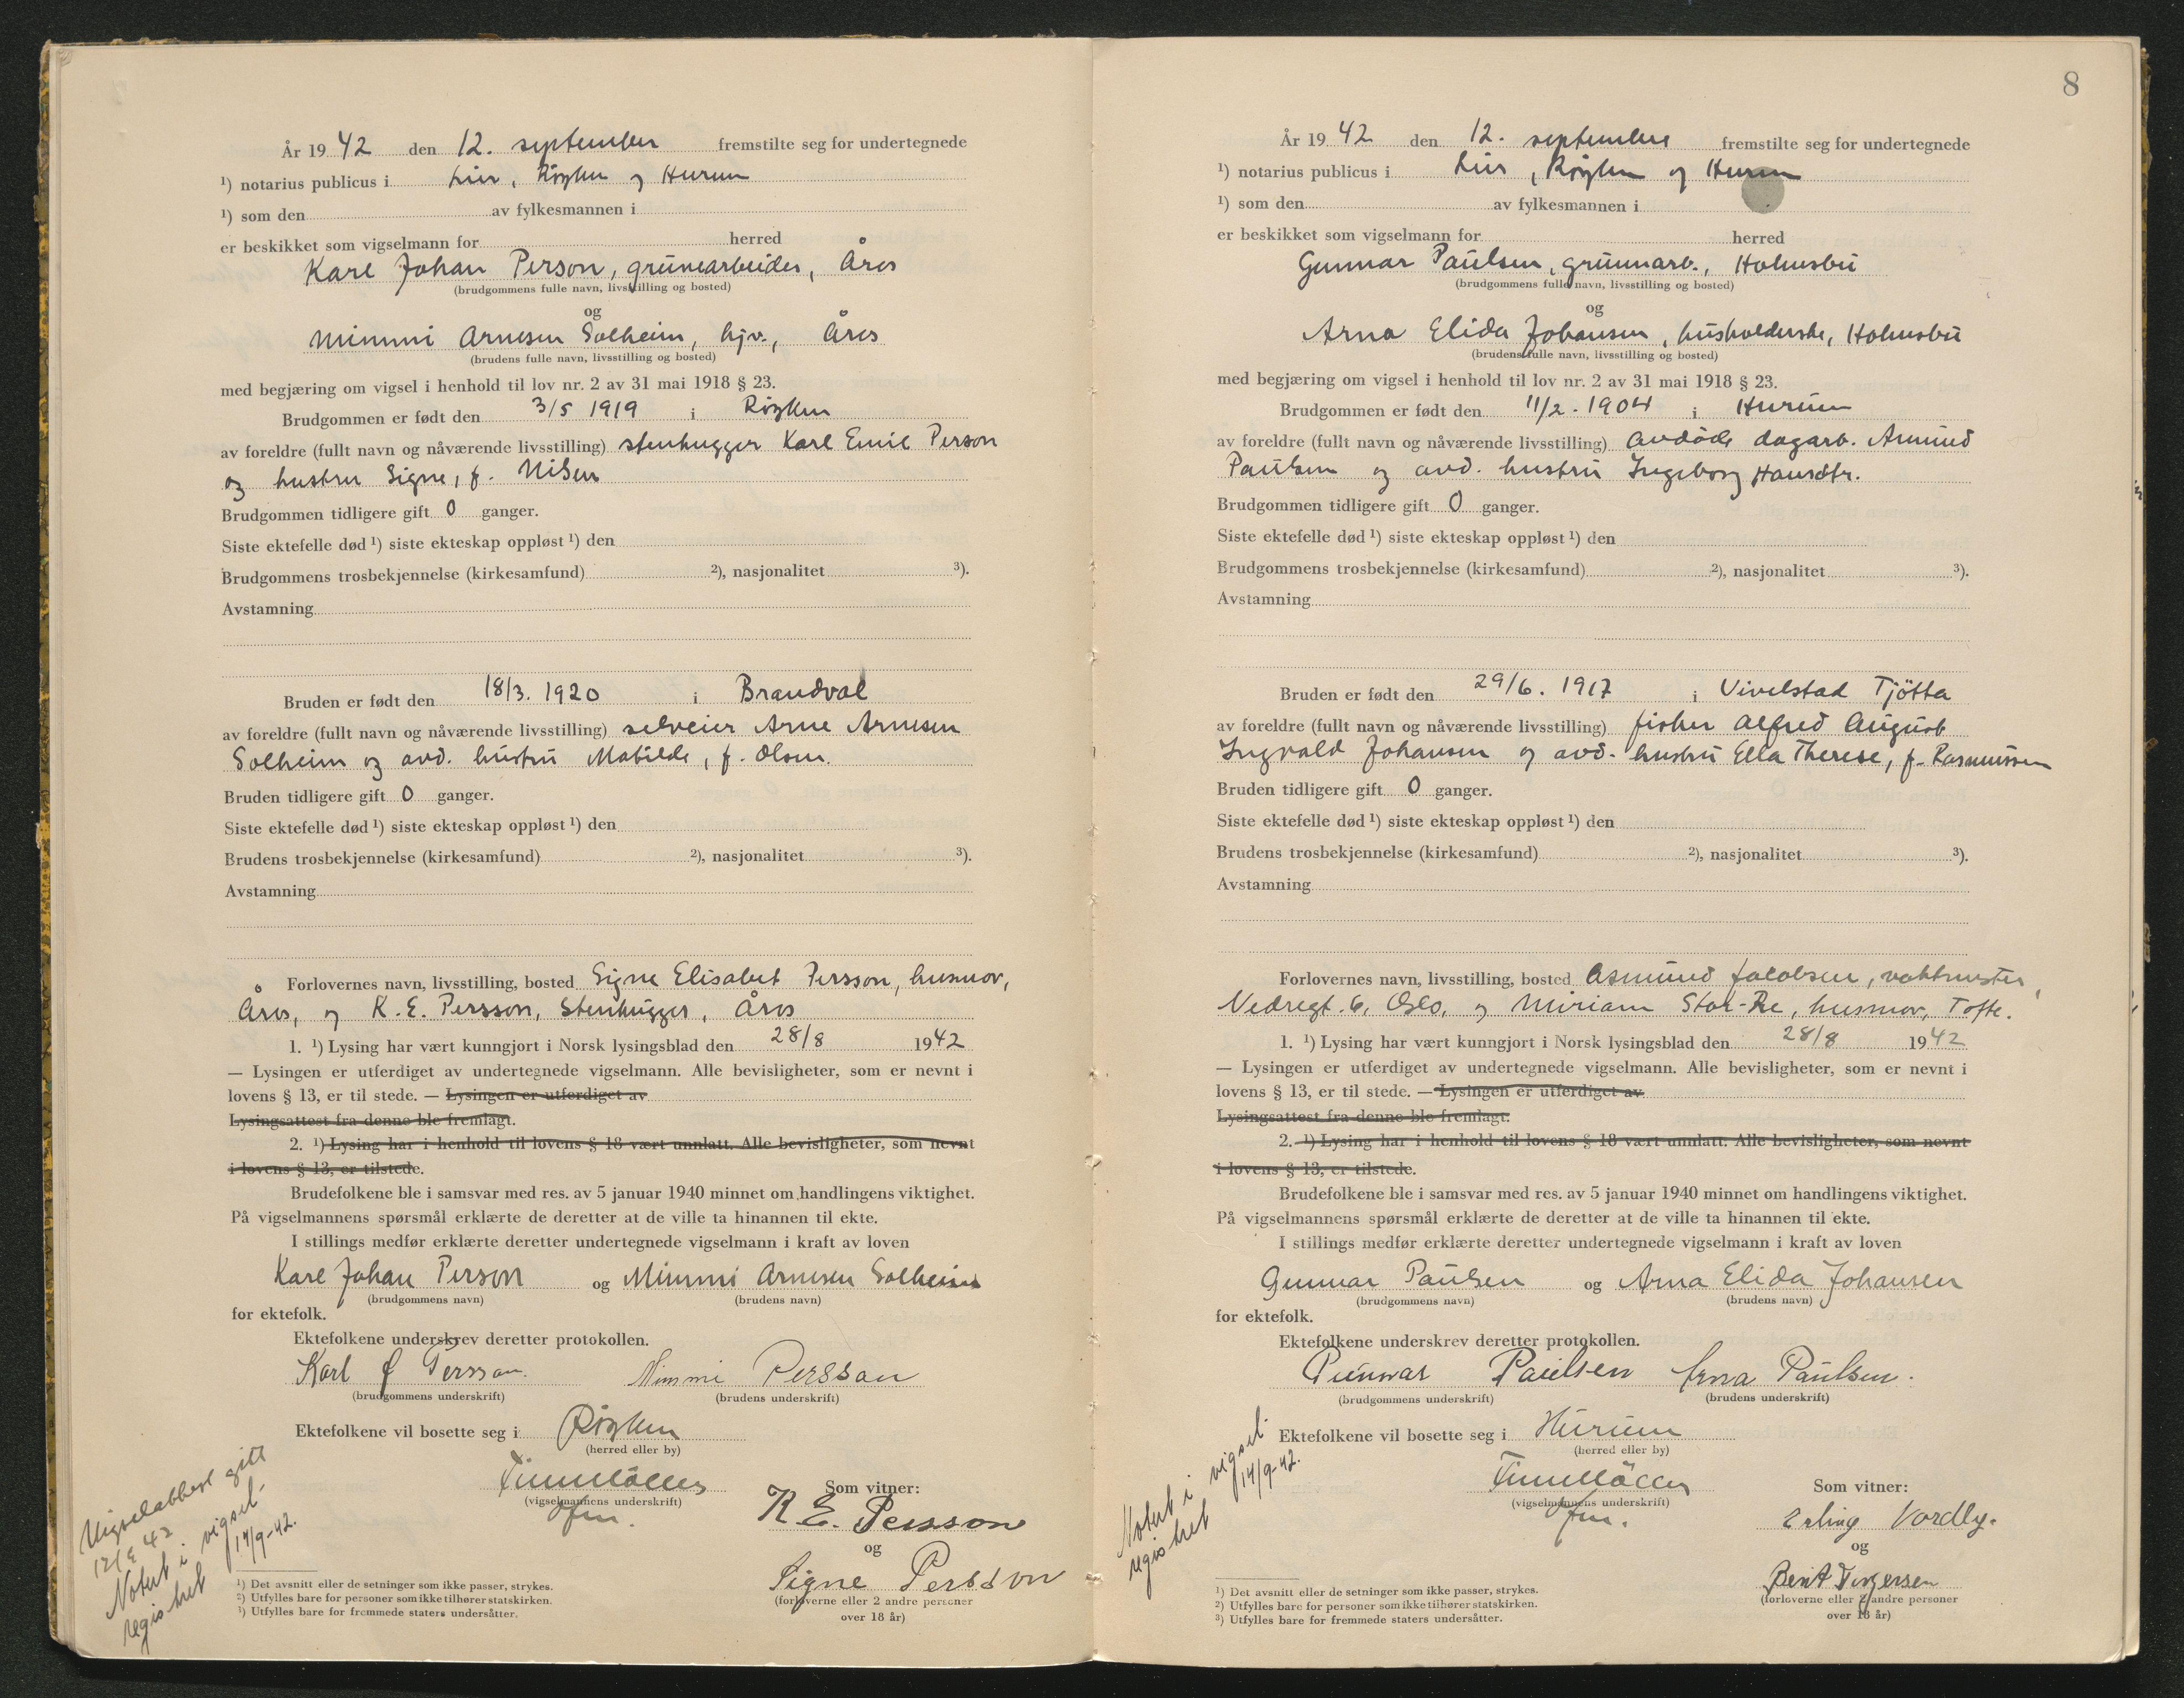 År 19 42 den 12. september fremstilte seg for undertegnede
¹) notarius publicus i Lier, Røyken og Hurum
¹) som den av fylkesmannen i
er beskikket som vigselmann for herred
Karl Johan Person, grunnarbeider, Åros
(brudgommens fulle navn, livsstilling og bosted)
og
Mimmi Arnesen Solheim, hjv., Åros
(brudens fulle navn, livsstilling og bosted)
med begjæring om vigsel i henhold til lov nr. 2 av 31 mai 1918 § 23.
Brudgommen er født den 3/5 1919 i Røyken
av foreldre (fullt navn og nåværende livsstilling) stenhugger Karl Emil Person
og hustru Signe, f. Nilsen
Brudgommen tidligere gift 0 ganger.
Siste ektefelle død ¹) siste ekteskap oppløst ¹) den
Brudgommens trosbekjennelse (kirkesamfund) ²), nasjonalitet ³).
Avstamning
Bruden er født den 18/3. 1920 i Brandval
av foreldre (fullt navn og nåværende livsstilling) selveier Arne Arnesen
Solheim og avd. hustru Matilde, f. Olsen.
Bruden tidligere gift 0 ganger.
Siste ektefelle død ¹) siste ekteskap oppløst ¹) den
Brudens trosbekjennelse (kirkesamfund) ²), nasjonalitet ³).
Avstamning
Forlovernes navn, livsstilling, bosted Signe Elisabet Persson, husmor,
Åros, og K. E. Persson, Stenhugger, Åros
1. ¹) Lysing har vært kunngjort i Norsk lysingsblad den 28/8 1942
— Lysingen er utferdiget av undertegnede vigselmann. Alle bevisligheter, som er nevnt i
lovens § 13, er til stede. — Lysingen er utferdiget av
Lysingsattest fra denne ble fremlagt.
2. ¹) Lysing har i henhold til lovens § 18 vært unnlatt. Alle bevisligheter, som nevnt
i lovens § 13, er tilstede.
Brudefolkene ble i samsvar med res. av 5 januar 1940 minnet om handlingens viktighet.
På vigselmannens spørsmål erklærte de deretter at de ville ta hinannen til ekte.
I stillings medfør erklærte deretter undertegnede vigselmann i kraft av loven
Karl Johan Person og Mimmi Arnesen Solheim
(brudgommens navn) (brudens navn)
for ektefolk.
Ektefolkene underskrev deretter protokollen.
Karl J Persson. Mimmi Persson
(brudgommens underskrift) (brudens underskrift)
Ektefolkene vil bosette seg i Røyken
(herred eller by)
(vigselmannens underskrift)
Som vitner:
K E. Persson
og
Signe Persson
(forloverne eller 2 andre personer
over 18 år)
Vigselattest gitt
12/9 42
Notert i vigsel-
registret 14/9-42.
¹) Det avsnitt eller de setninger som ikke passer, strykes.
²) Utfylles bare for personer som ikke tilhører statskirken.
³) Utfylles bare for fremmede staters undersåtter.
8
År 19 42 den 12. september fremstilte seg for undertegnede
¹) notarius publicus i Lier, Røyken og Hurum
¹) som den av fylkesmannen i
er beskikket som vigselmann for herred
Gunnar Paulsen, grunnarb., Holmsbu
(brudgommens fulle navn, livsstilling og bosted)
og
Arna Elida Johansen, husholderske, Holmsbu
(brudens fulle navn, livsstilling og bosted)
med begjæring om vigsel i henhold til lov nr. 2 av 31 mai 1918 § 23.
Brudgommen er født den 11/2 - 1904 i Hurum
av foreldre (fullt navn og nåværende livsstilling) avdøde dagarb. Amund
Paulsen og avd. hustru Ingeborg Hansdtr.
Brudgommen tidligere gift 0 ganger.
Siste ektefelle død ¹) siste ekteskap oppløst ¹) den
Brudgommens trosbekjennelse (kirkesamfund) ²), nasjonalitet ³).
Avstamning
Bruden er født den 29/6. 1917 i Vivelstad Tjötta
av foreldre (fullt navn og nåværende livsstilling) fisker Alfred August
Ingvald Johansen og avd. hustru Ella Therese, f. Rasmussen
Bruden tidligere gift 0 ganger.
Siste ektefelle død ¹) siste ekteskap oppløst ¹) den
Brudens trosbekjennelse (kirkesamfund) ²), nasjonalitet ³).
Avstamning
Forlovernes navn, livsstilling, bosted Asmund Jacobsen, vaktmester,
Nedregt. 6, Oslo, og Miriam Stor-Re, husmor, Tofte.
1. ¹) Lysing har vært kunngjort i Norsk lysingsblad den 28/8 1942
— Lysingen er utferdiget av undertegnede vigselmann. Alle bevisligheter, som er nevnt i
lovens § 13, er til stede. — Lysingen er utferdiget av
Lysingsattest fra denne ble fremlagt.
2. ¹) Lysing har i henhold til lovens § 18 vært unnlatt. Alle bevisligheter, som nevnt
i lovens § 13, er tilstede.
Brudefolkene ble i samsvar med res. av 5 januar 1940 minnet om handlingens viktighet.
På vigselmannens spørsmål erklærte de deretter at de ville ta hinannen til ekte.
I stillings medfør erklærte deretter undertegnede vigselmann i kraft av loven
Gunnar Paulsen og Arna Elida Johansen
(brudgommens navn) (brudens navn)
for ektefolk.
Ektefolkene underskrev deretter protokollen.
Gunnar Paulsen Arna Paulsen.
(brudgommens underskrift) (brudens underskrift)
Ektefolkene vil bosette seg i Hurum
(herred eller by)
(vigselmannens underskrift)
Som vitner:
Erling Nordby.
og
Berit Torgersen
(forloverne eller 2 andre personer
over 18 år)
Notert i vigsel-
registret 14/9-42.
¹) Det avsnitt eller de setninger som ikke passer, strykes.
²) Utfylles bare for personer som ikke tilhører statskirken.
³) Utfylles bare for fremmede staters undersåtter.